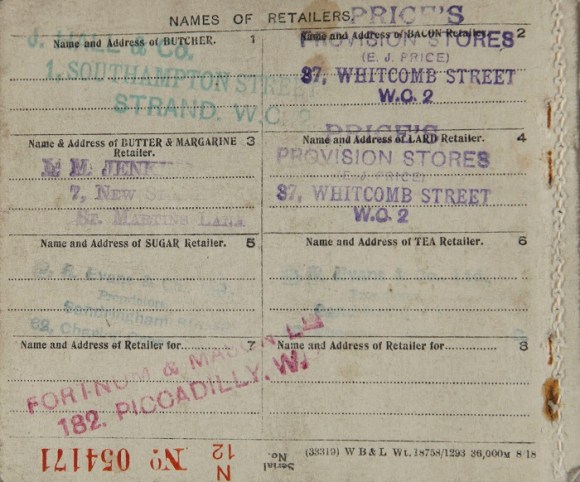 NAMES OF RETAILERS.
PRICE'S
Name and Address of BUTCHER. 1
& CO.
1, SOUTHAMPTON STREET
STRAND. W.C. 2
Name and Address of BACON Retailer. 2
PROVISION STORES
(E. J. PRICE)
37, WHITCOMB STREET
W.C. 2
Name & Address of BUTTER & MARGARINE 3
Retailer.
JENK
7, NEW
ST. MARTINS LANE
PRICE'S
Name and Address of LARD Retailer. 4
PROVISION STORES
(E. J. PRICE)
37, WHITCOMB STREET
W.C. 2
Name and Address of SUGAR Retailer. 5
Evans &
Provision
Sandringham
62,
Name and Address of TEA Retailer. 6
Evans
Name and Address of Retailer for 7
FORTNUM & MASON
182. PICCADILLY. W.
Name and Address of Retailer for 8
Serial No.
N 12
No 054171
(33319) W B & L Wt. 18758/1293 36,000M 8/18